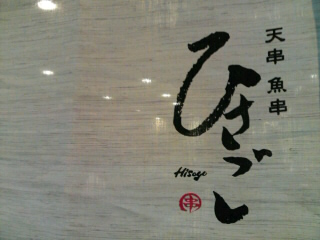 天串魚串
ひさごし
Hisago
串